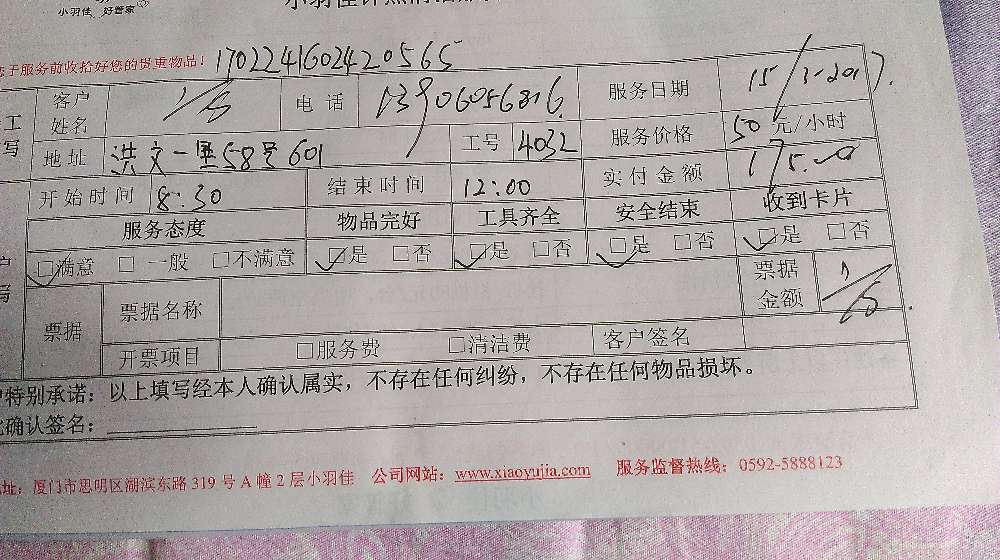 小羽佳 好管家
于服务前收拾好您的贵重物品! 1702241602420565
客户姓名 电话 13906056816 服务日期 15/3-2017.
地址 洪文一里58号601 工号 4032 服务价格 50元/小时
开始时间 8:30 结束时间 12:00 实付金额 175.00
服务态度 物品完好 工具齐全 安全结束 收到卡片
□满意 □一般 □不满意 □是 □否 □是 □否 □是 □否 □是 □否
票据 票据名称 票据金额
开票项目 □服务费 □清洁费 客户签名
特别承诺：以上填写经本人确认属实，不存在任何纠纷，不存在任何物品损坏。
确认签名：
址：厦门市思明区湖滨东路 319 号 A 幢 2 层小羽佳 公司网站：www.xiaoyujia.com 服务监督热线：0592-5888123